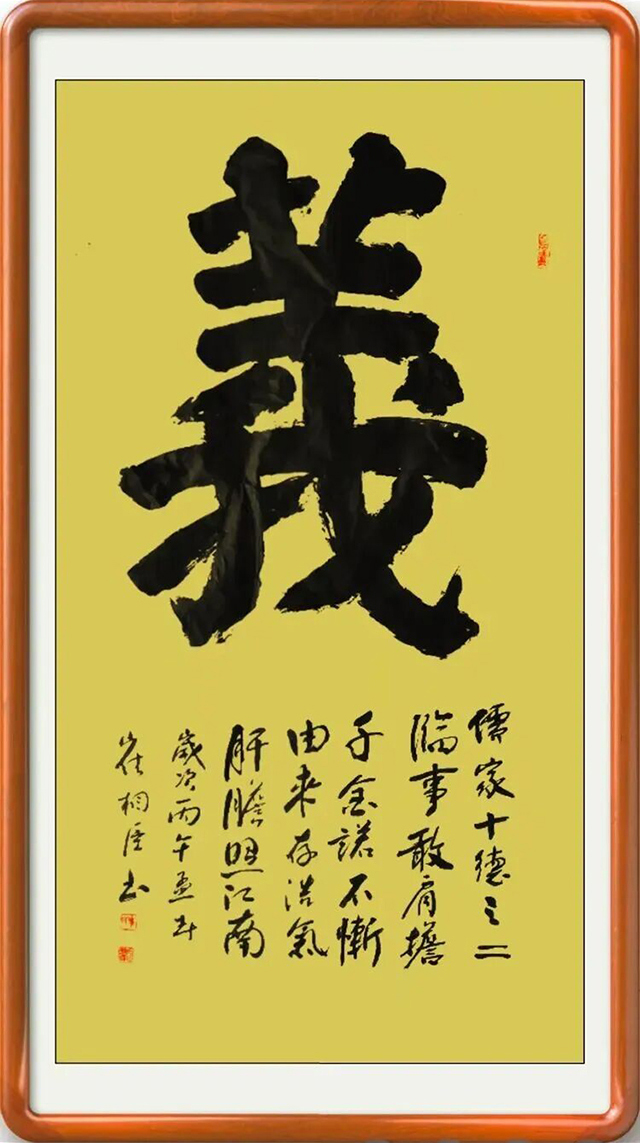 義
儒家十德之二
臨事敢肩擔
千金諾不慚
由來存浩氣
肝膽照江南
歲次丙午孟春
崔桐
书